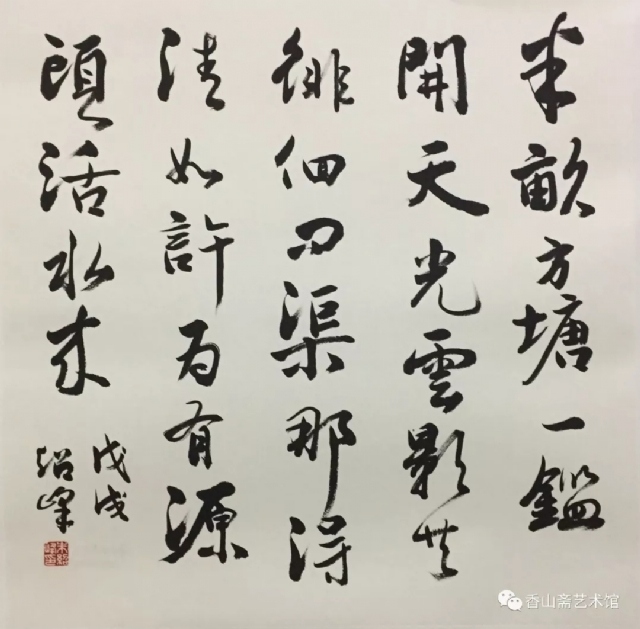 半畝方塘一鑑
開天光雲影共
徘徊問渠那得
清如許為有源
頭活水來
戊戌
紹峰
香山斋艺术馆